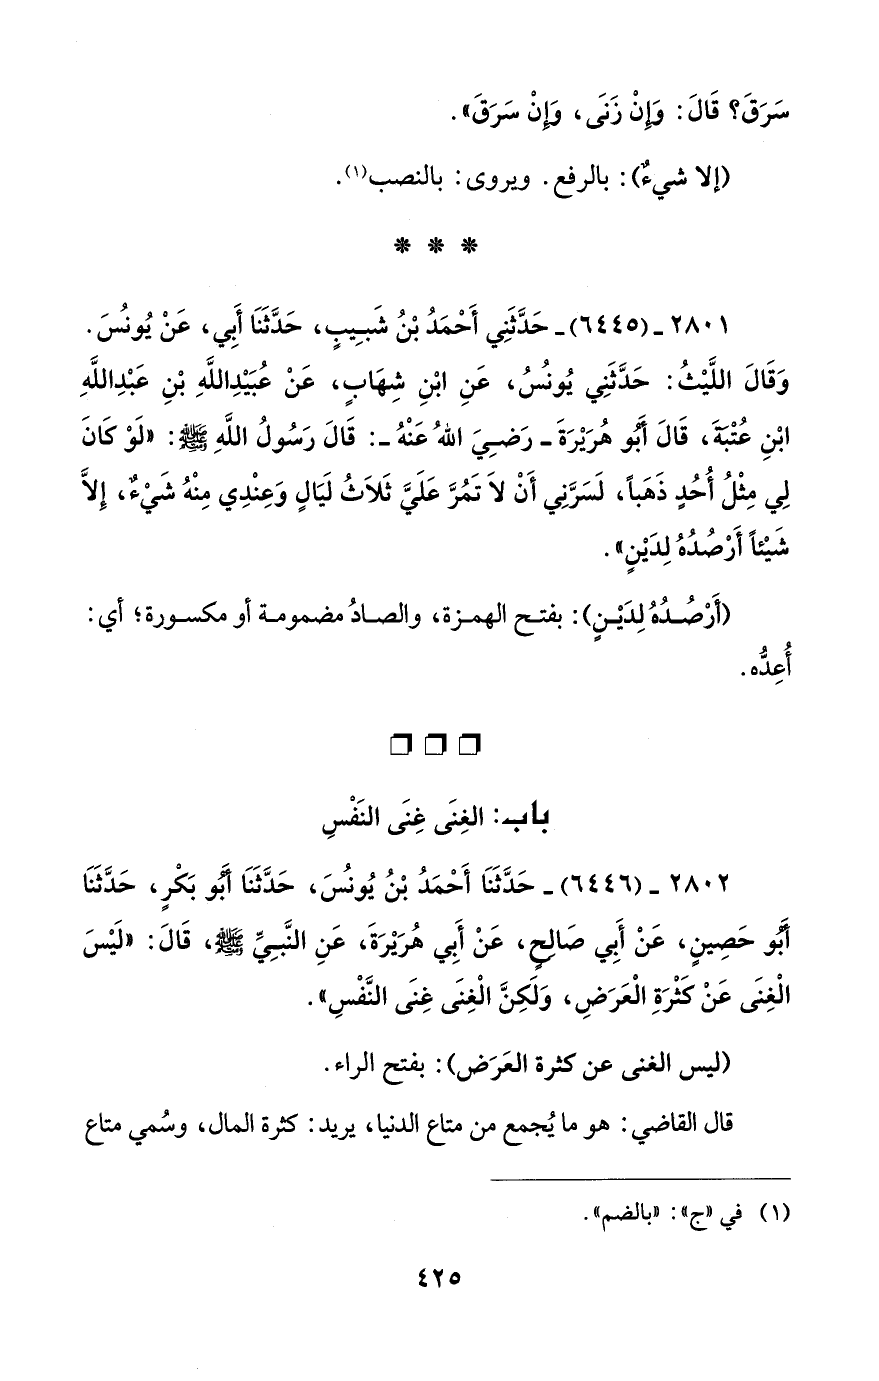 سَرَقَ؟ قَالَ: وَإِنْ زَنَى، وَإِنْ سَرَقَ».
(إلا شيءٌ): بالرفع. ويروى: بالنصب(١).
* * *
٢٨٠١ ـ (٦٤٤٥) ـ حَدَّثَنِي أَحْمَدُ بْنُ شَبِيبٍ، حَدَّثَنَا أَبِي، عَنْ يُونُسَ.
وَقَالَ اللَّيْثُ: حَدَّثَنِي يُونُسُ، عَنِ ابْنِ شِهَابٍ، عَنْ عُبَيْدِاللَّهِ بْنِ عَبْدِاللَّهِ
ابْنِ عُتْبَةَ، قَالَ أَبُو هُرَيْرَةَ ـ رَضِيَ اللهُ عَنْهُ ـ: قَالَ رَسُولُ اللَّهِ ﷺ: «لَوْ كَانَ
لِي مِثْلُ أُحُدٍ ذَهَباً، لَسَرَّنِي أَنْ لاَ تَمُرَّ عَلَيَّ ثَلاَثُ لَيَالٍ وَعِنْدِي مِنْهُ شَيْءٌ، إِلاَّ
شَيْئاً أَرْصُدُهُ لِدَيْنٍ».
(أَرْصُدُهُ لِدَيْنٍ): بفتح الهمزة، والصادُ مضمومة أو مكسورة؛ أي:
أُعِدُّه.
❒ ❒ ❒
باب: الغِنَى غِنَى النَفْسِ
٢٨٠٢ ـ (٦٤٤٦) ـ حَدَّثَنَا أَحْمَدُ بْنُ يُونُسَ، حَدَّثَنَا أَبُو بَكْرٍ، حَدَّثَنَا
أَبُو حَصِينٍ، عَنْ أَبِي صَالِحٍ، عَنْ أَبِي هُرَيْرَةَ، عَنِ النَّبِيِّ ﷺ، قَالَ: «لَيْسَ
الْغِنَى عَنْ كَثْرَةِ الْعَرَضِ، وَلَكِنَّ الْغِنَى غِنَى النَّفْسِ».
(ليس الغنى عن كثرة العَرَض): بفتح الراء.
قال القاضي: هو ما يُجمع من متاع الدنيا، يريد: كثرة المال، وسُمي متاع
(١) في «ج»: «بالضم».
٤٢٥